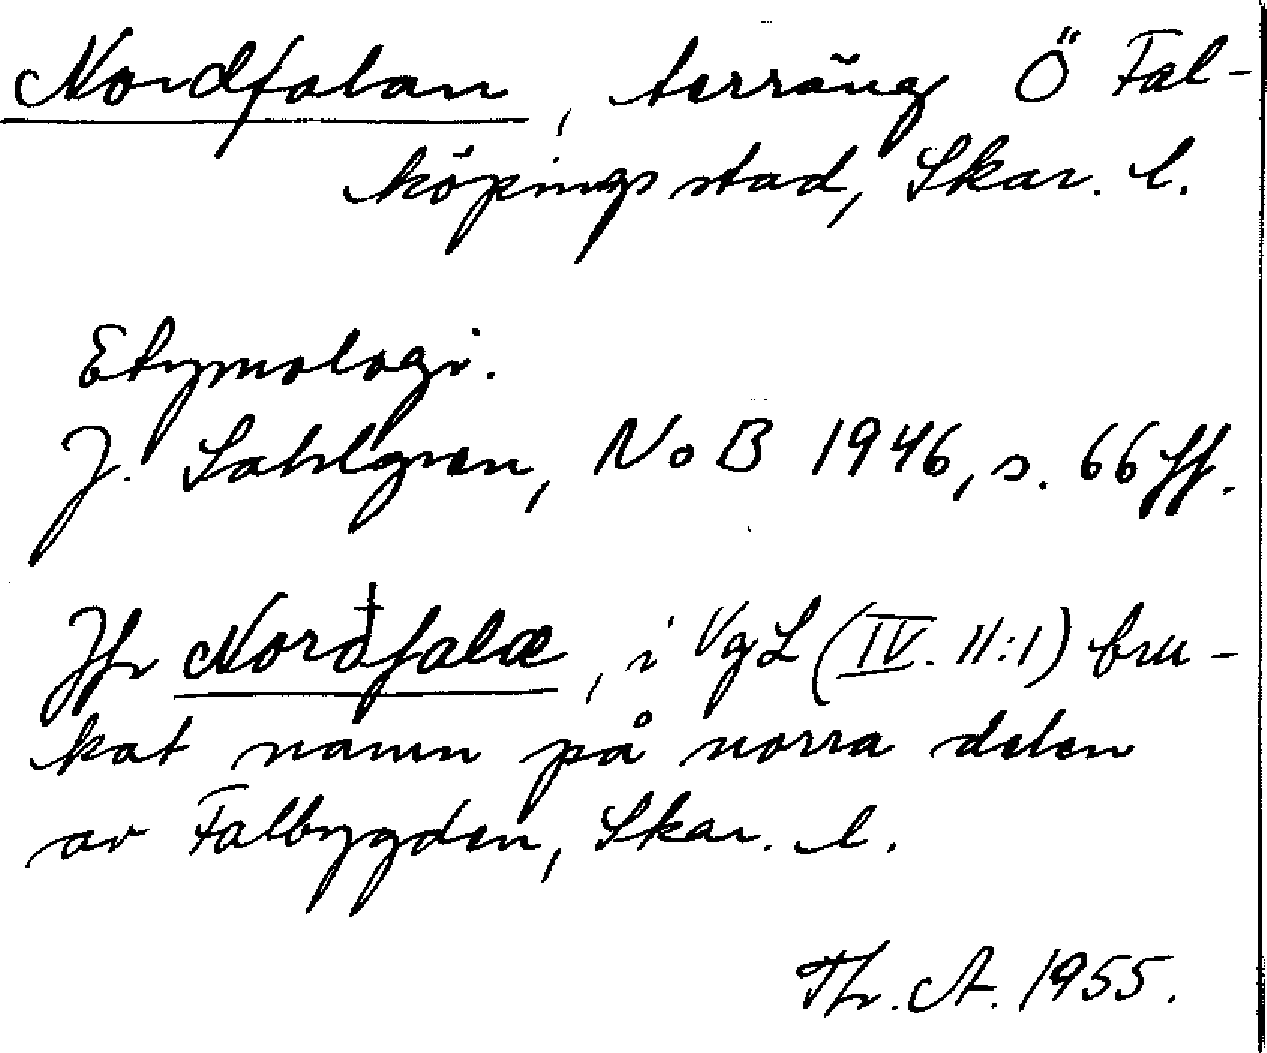 Nordfalan, terräng Ö Fal-
köpings stad, Skar. l.
Etymologi.
J. Sahlgren, NoB 1946, s. 66 ff.
Jfr Norđfalæ, i VgL (IV. 11:1) bru-
kat namn på norra delen
av Falbygden, Skar. l.
Th. A. 1955.